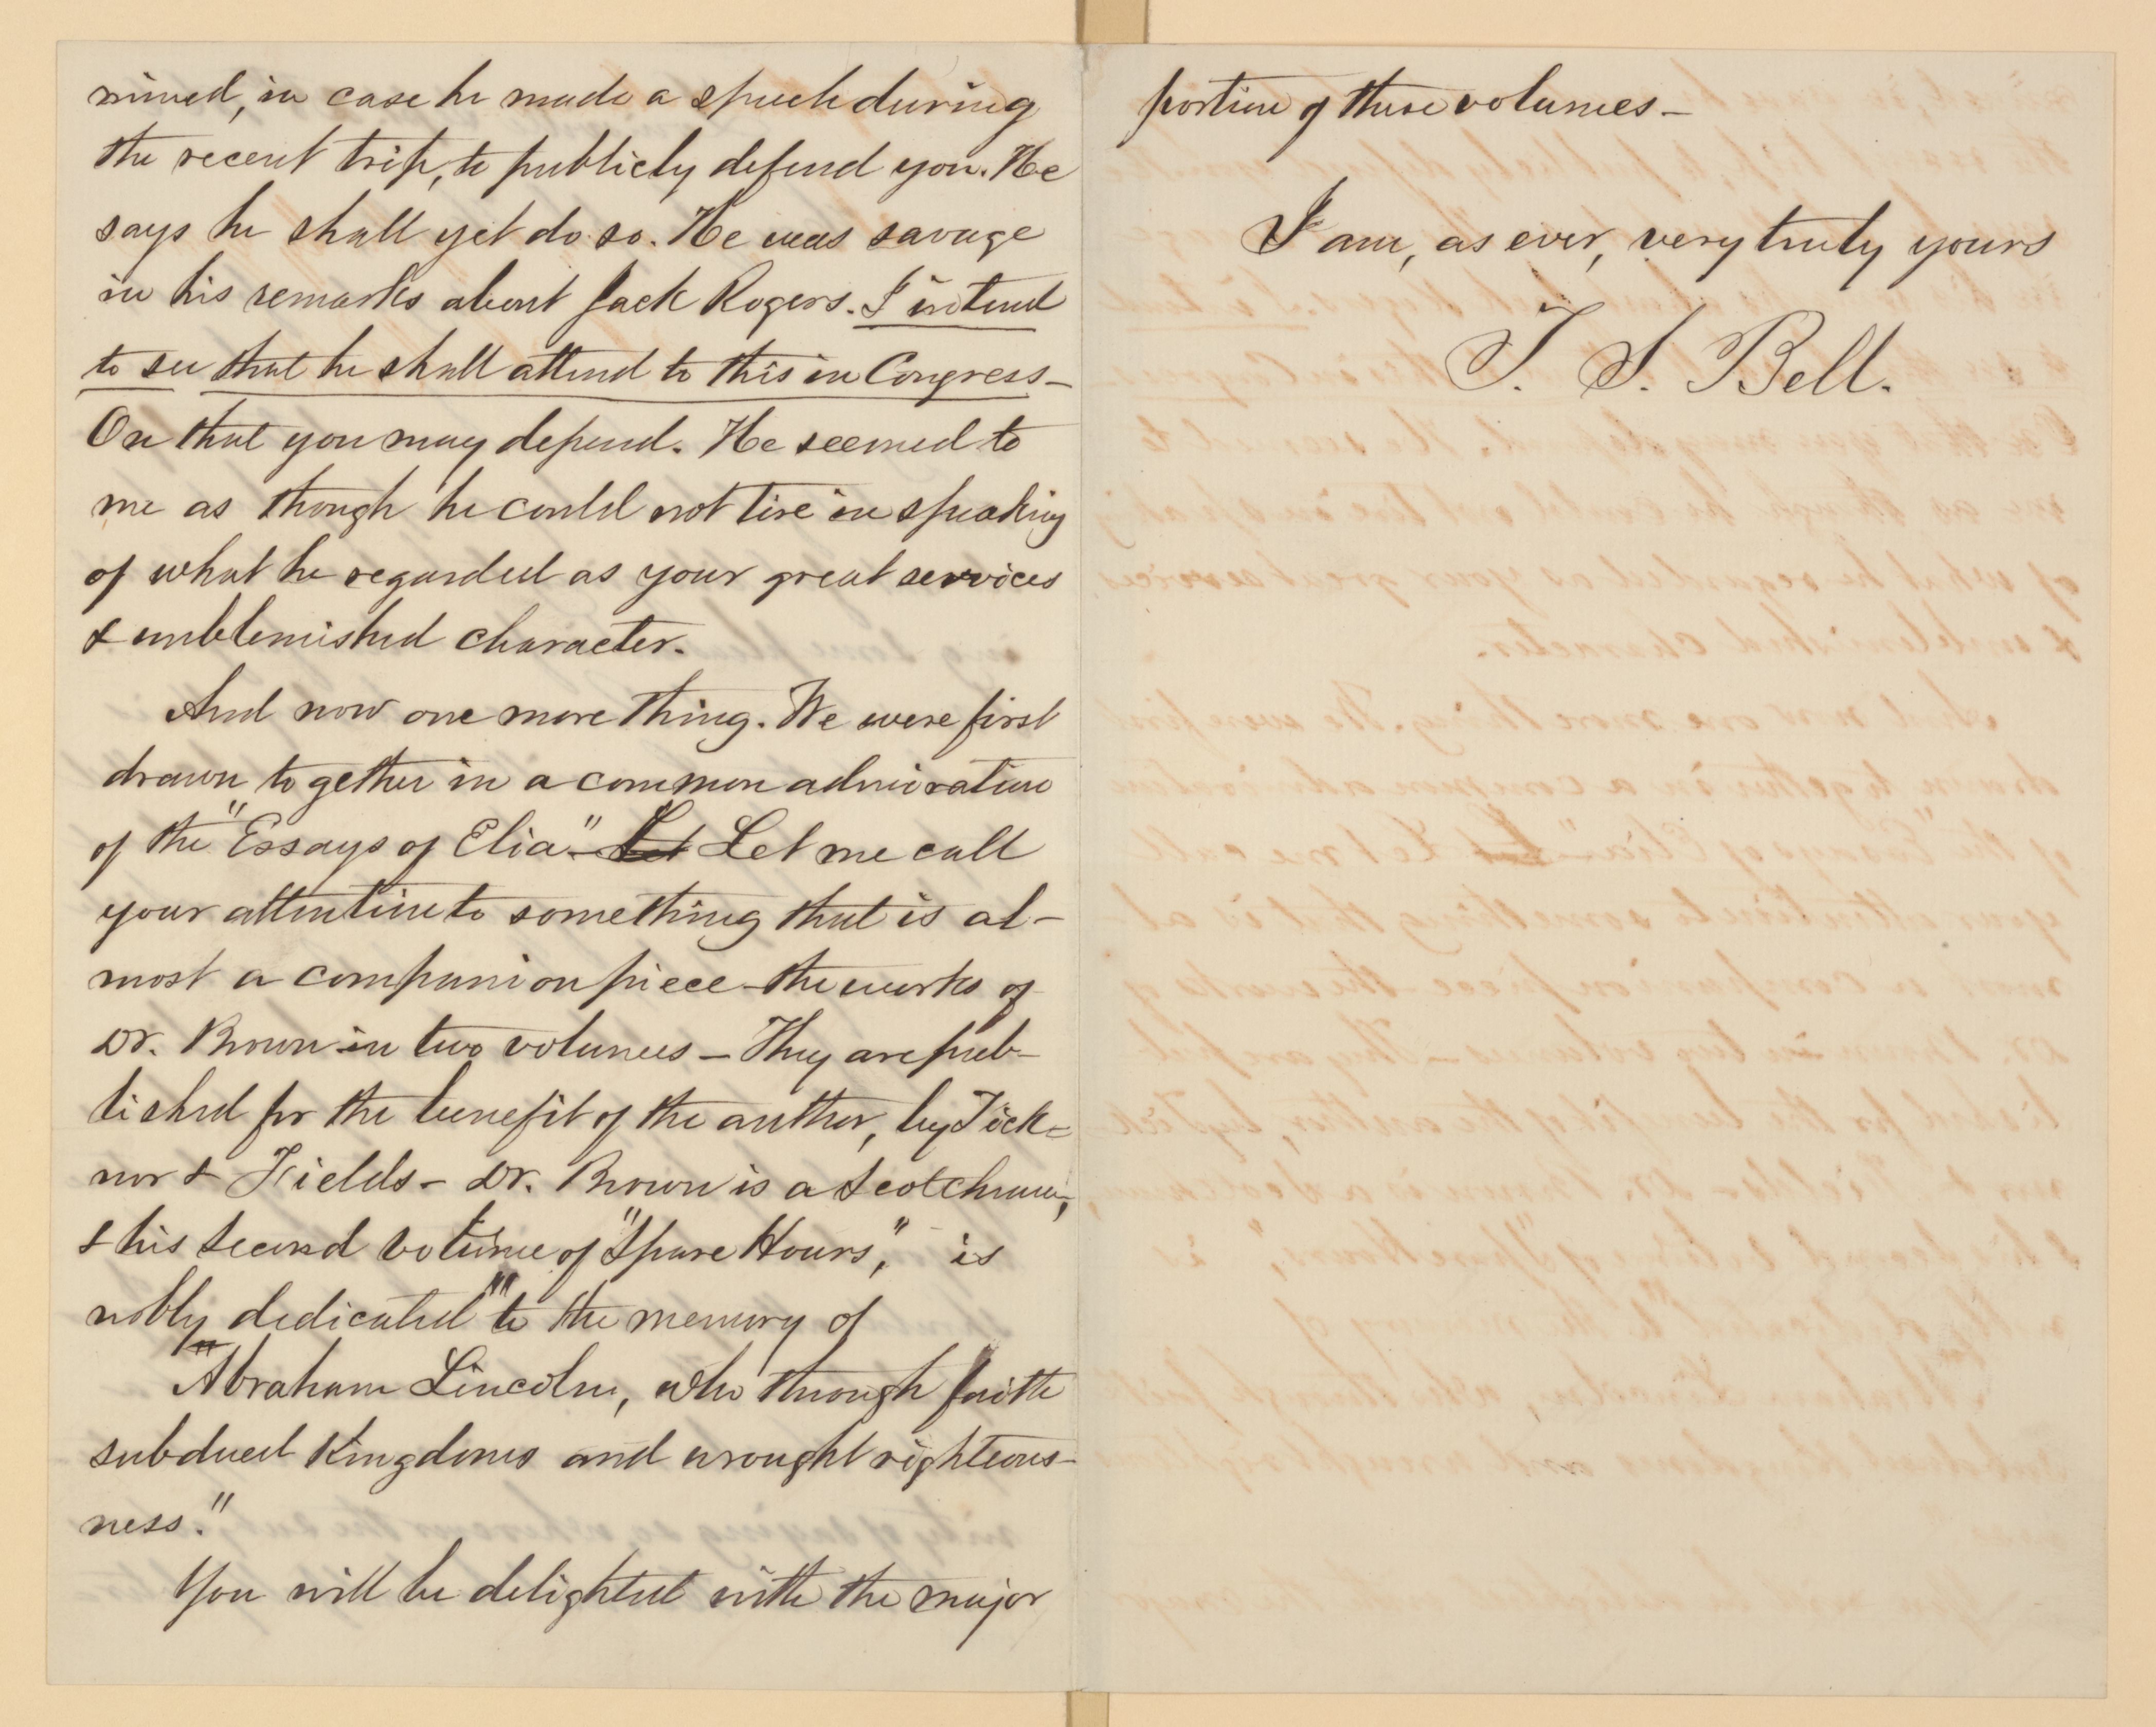 mined, in case he made a speech during
the recent trip, to publicly defend you. He
says he shall yet do so. He was savage
in his remarks about Jack Rogers. I intend
to see that he shall attend to this in Congress—
On that you may depend. He seemed to
me as though he could not tire in speaking
of what he regarded as your great services
& unblemished character.
And now one more thing. We were first
drawn together in a common admiration
of the "Essays of Elia". Let Let me call
your attention to something that is al-
most a companion piece—the works of
Dr. Brown in two volumes — They are pub-
lished for the benefit of the author, by Tick=
nor & Fields — Dr. Brown is a Scotchman,
& his second volume of "Spare Hours," is
nobly dedicated "to the memory of
"Abraham Lincoln, who through faith
subdued Kingdoms and wrought righteous-
ness."
You will be delighted with the major
portion of these volumes —
I am, as ever, very truly yours
T. S. Bell.